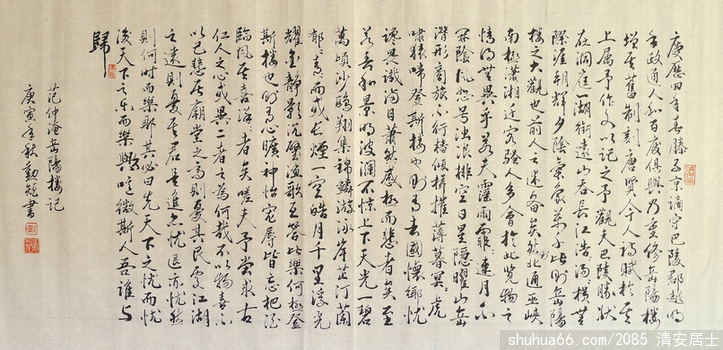 庆歷四年春滕子京谪守巴陵郡越明
年政通人和百废俱興乃重修岳陽楼
增其舊制刻唐贤今人诗赋於其
上属予作文以记之予觀夫巴陵勝状
在洞庭一湖衔遠山吞長江浩浩湯湯横無
際涯朝輝夕陰氣象萬千此則岳陽
楼之大觀也前人之述备矣然则北通巫峡
南極潇湘迁客骚人多會於此览物之
情得無異乎若夫霪雨霏霏連月不
開陰風怒号浊浪排空日星隱曜山岳
潜形商旅不行檣傾楫摧薄暮冥冥虎
啸猿啼登斯楼也則有去國懷鄉忧
谗畏讥满目萧然感極而悲者矣至
若春和景明波澜不惊上下天光一碧
萬頃沙鸥翔集錦鱗游泳岸芷汀蘭
郁郁青青而或長煙一空皓月千里浮光
耀金静影沉璧渔歌互答此樂何極登
斯楼也則有心曠神怡宠辱皆忘把酒
临風其喜洋洋者矣嗟夫予尝求古
仁人之心或異二者之為何哉不以物喜不
以己悲居庙堂之高則憂其民處江湖
之遠則憂其君是進亦忧退亦忧然
則何时而樂耶其必曰先天下之忧而忧
後天下之乐而樂欤噫微斯人吾谁与
歸
范仲淹岳陽樓记
庚寅年秋書
www.shuhua66.com/2085 清安居士